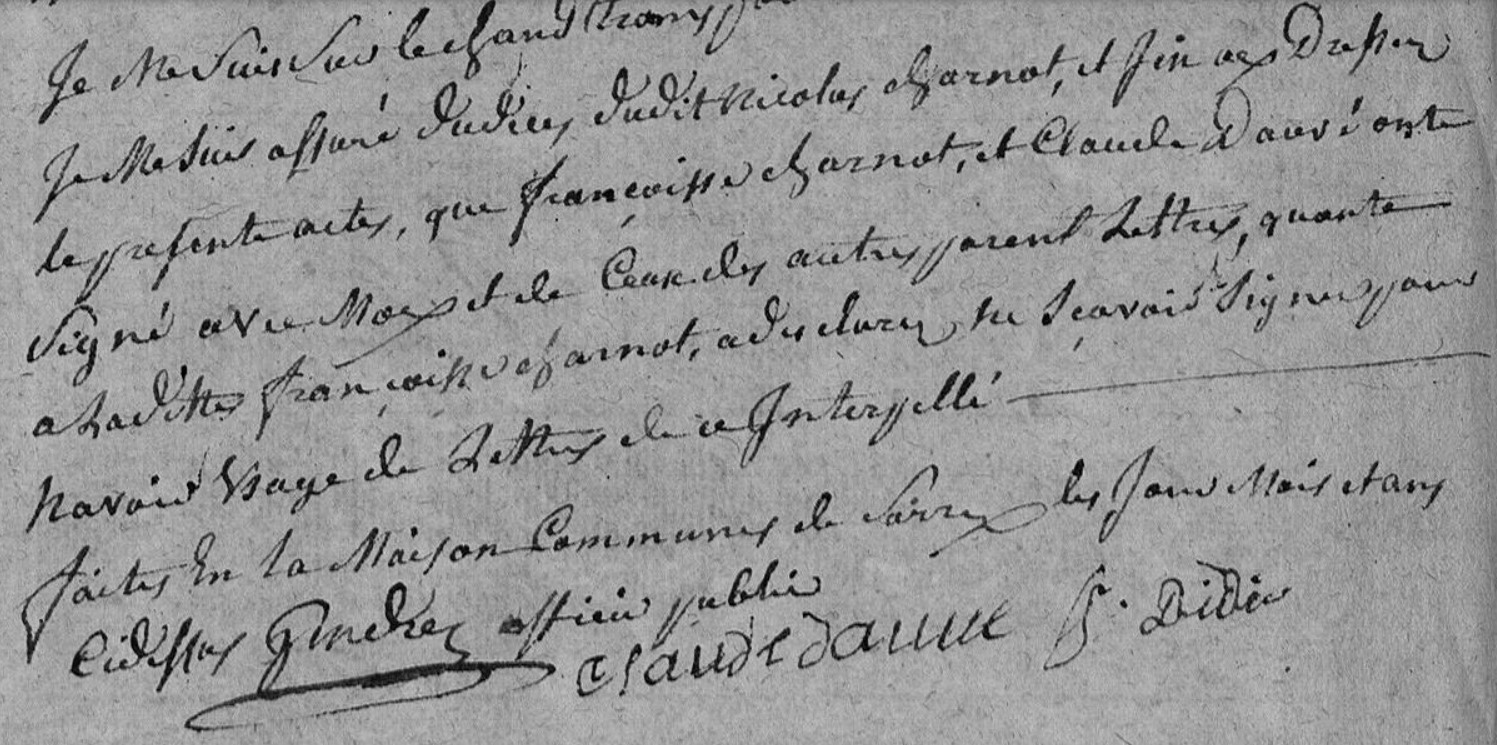 Je Me Suis Sur le Chand trans
Je Me Suis assuré du dices dudit Nicolas Charnot, et Jen aes Dressez
le presente actes, que françoisse Charnot, et Claude Dauvé onte
signé avec Moy et de Ceux des autres parent Lettres, quante
a Ladittes françoisse Charnot, a desclarez ne Sçavoir Signer pour
Navoir Usage de Lettres de ce Interpellé
faites En la Maison Communes de les Jour Mois et ans
Cidessus officier public
Claude dauve St. Didier